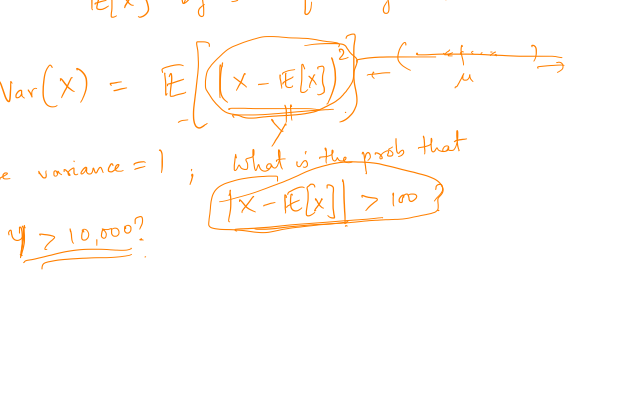 E[x]
Var(x) = E[(x - E[x])²]
μ
Y
variance = 1 ; What is the prob that
|x - E[x]| > 100 ?
Y > 10,000?